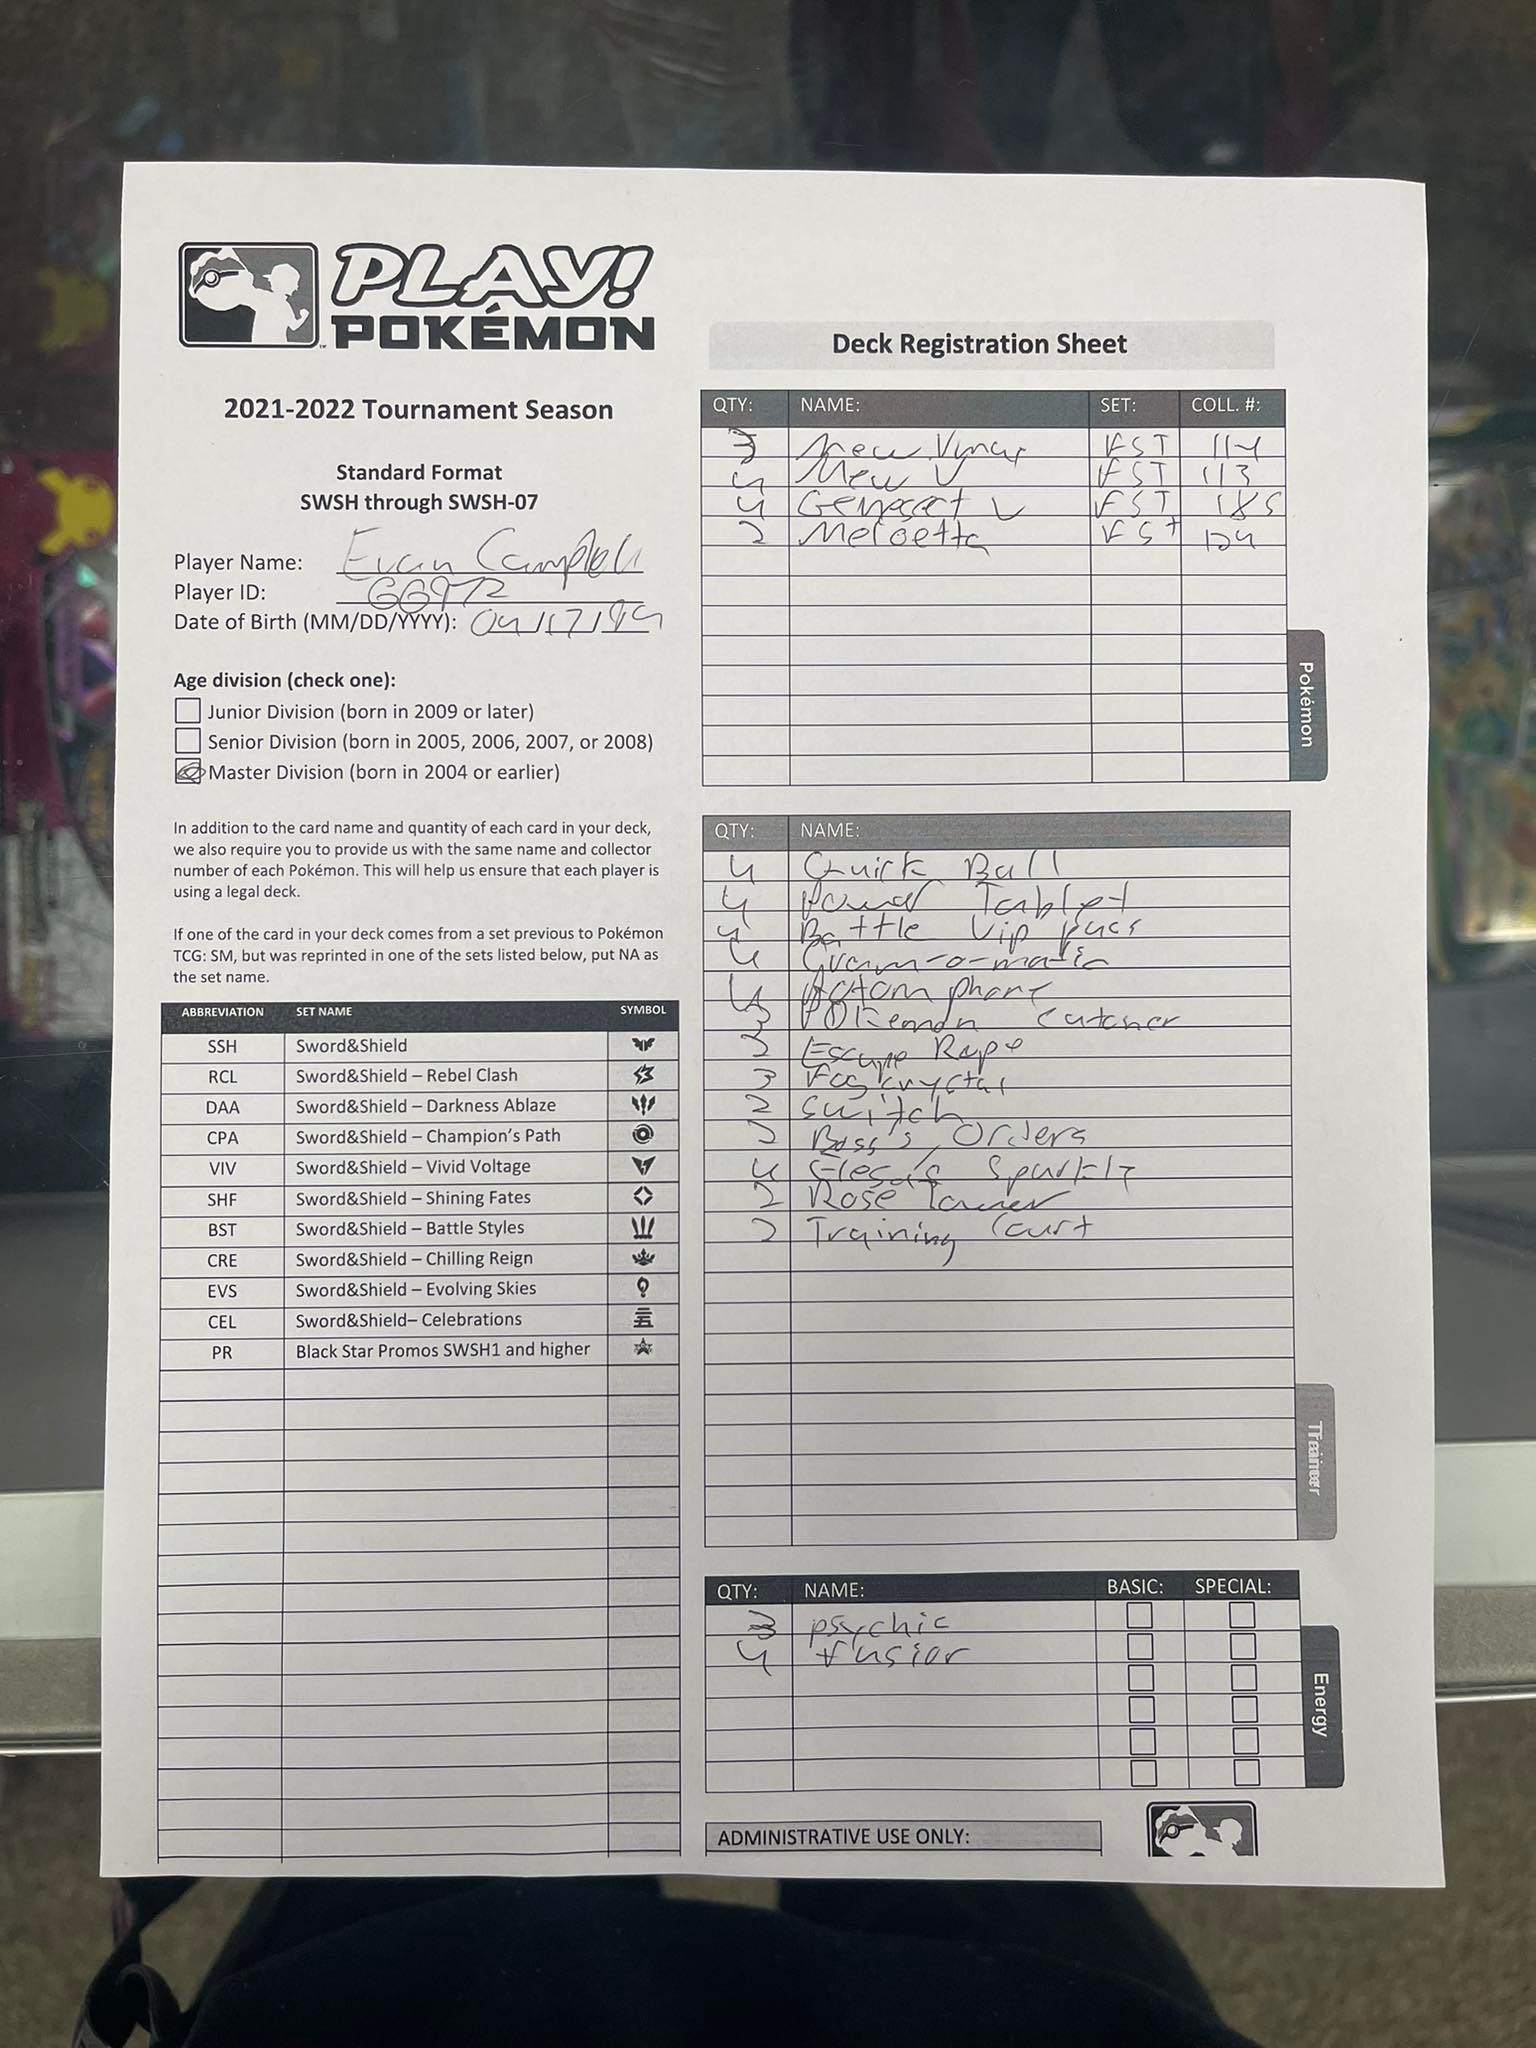 PLAY!
POKÉMON
2021-2022 Tournament Season
Standard Format
SWSH through SWSH-07
Player Name: Evan Campbell
Player ID: 66972
Date of Birth (MM/DD/YYYY): 04/17/94
Age division (check one):
Junior Division (born in 2009 or later)
Senior Division (born in 2005, 2006, 2007, or 2008)
Master Division (born in 2004 or earlier)
In addition to the card name and quantity of each card in your deck,
we also require you to provide us with the same name and collector
number of each Pokémon. This will help us ensure that each player is
using a legal deck.
If one of the card in your deck comes from a set previous to Pokémon
TCG: SM, but was reprinted in one of the sets listed below, put NA as
the set name.
ABBREVIATION SET NAME SYMBOL
SSH Sword&Shield
RCL Sword&Shield – Rebel Clash
DAA Sword&Shield – Darkness Ablaze
CPA Sword&Shield – Champion's Path
VIV Sword&Shield – Vivid Voltage
SHF Sword&Shield – Shining Fates
BST Sword&Shield – Battle Styles
CRE Sword&Shield – Chilling Reign
EVS Sword&Shield – Evolving Skies
CEL Sword&Shield– Celebrations
PR Black Star Promos SWSH1 and higher
Deck Registration Sheet
QTY: NAME: SET: COLL. #:
3 Mew Vmax FST 114
4 Mew V FST 113
4 Genesect V FST 185
2 Meloetta FST 124
Pokémon
QTY: NAME:
4 Quick Ball
4 Power Tablet
4 Battle Vip pass
4 Cram-o-matic
4 Rotom phone
3 Pokemon Catcher
2 Escape Rope
3 Fog crystal
2 Switch
2 Boss's Orders
4 Elesa's Sparkle
2 Rose Tower
2 Training Court
Trainer
QTY: NAME: BASIC: SPECIAL:
3 psychic
4 fusion
Energy
ADMINISTRATIVE USE ONLY: